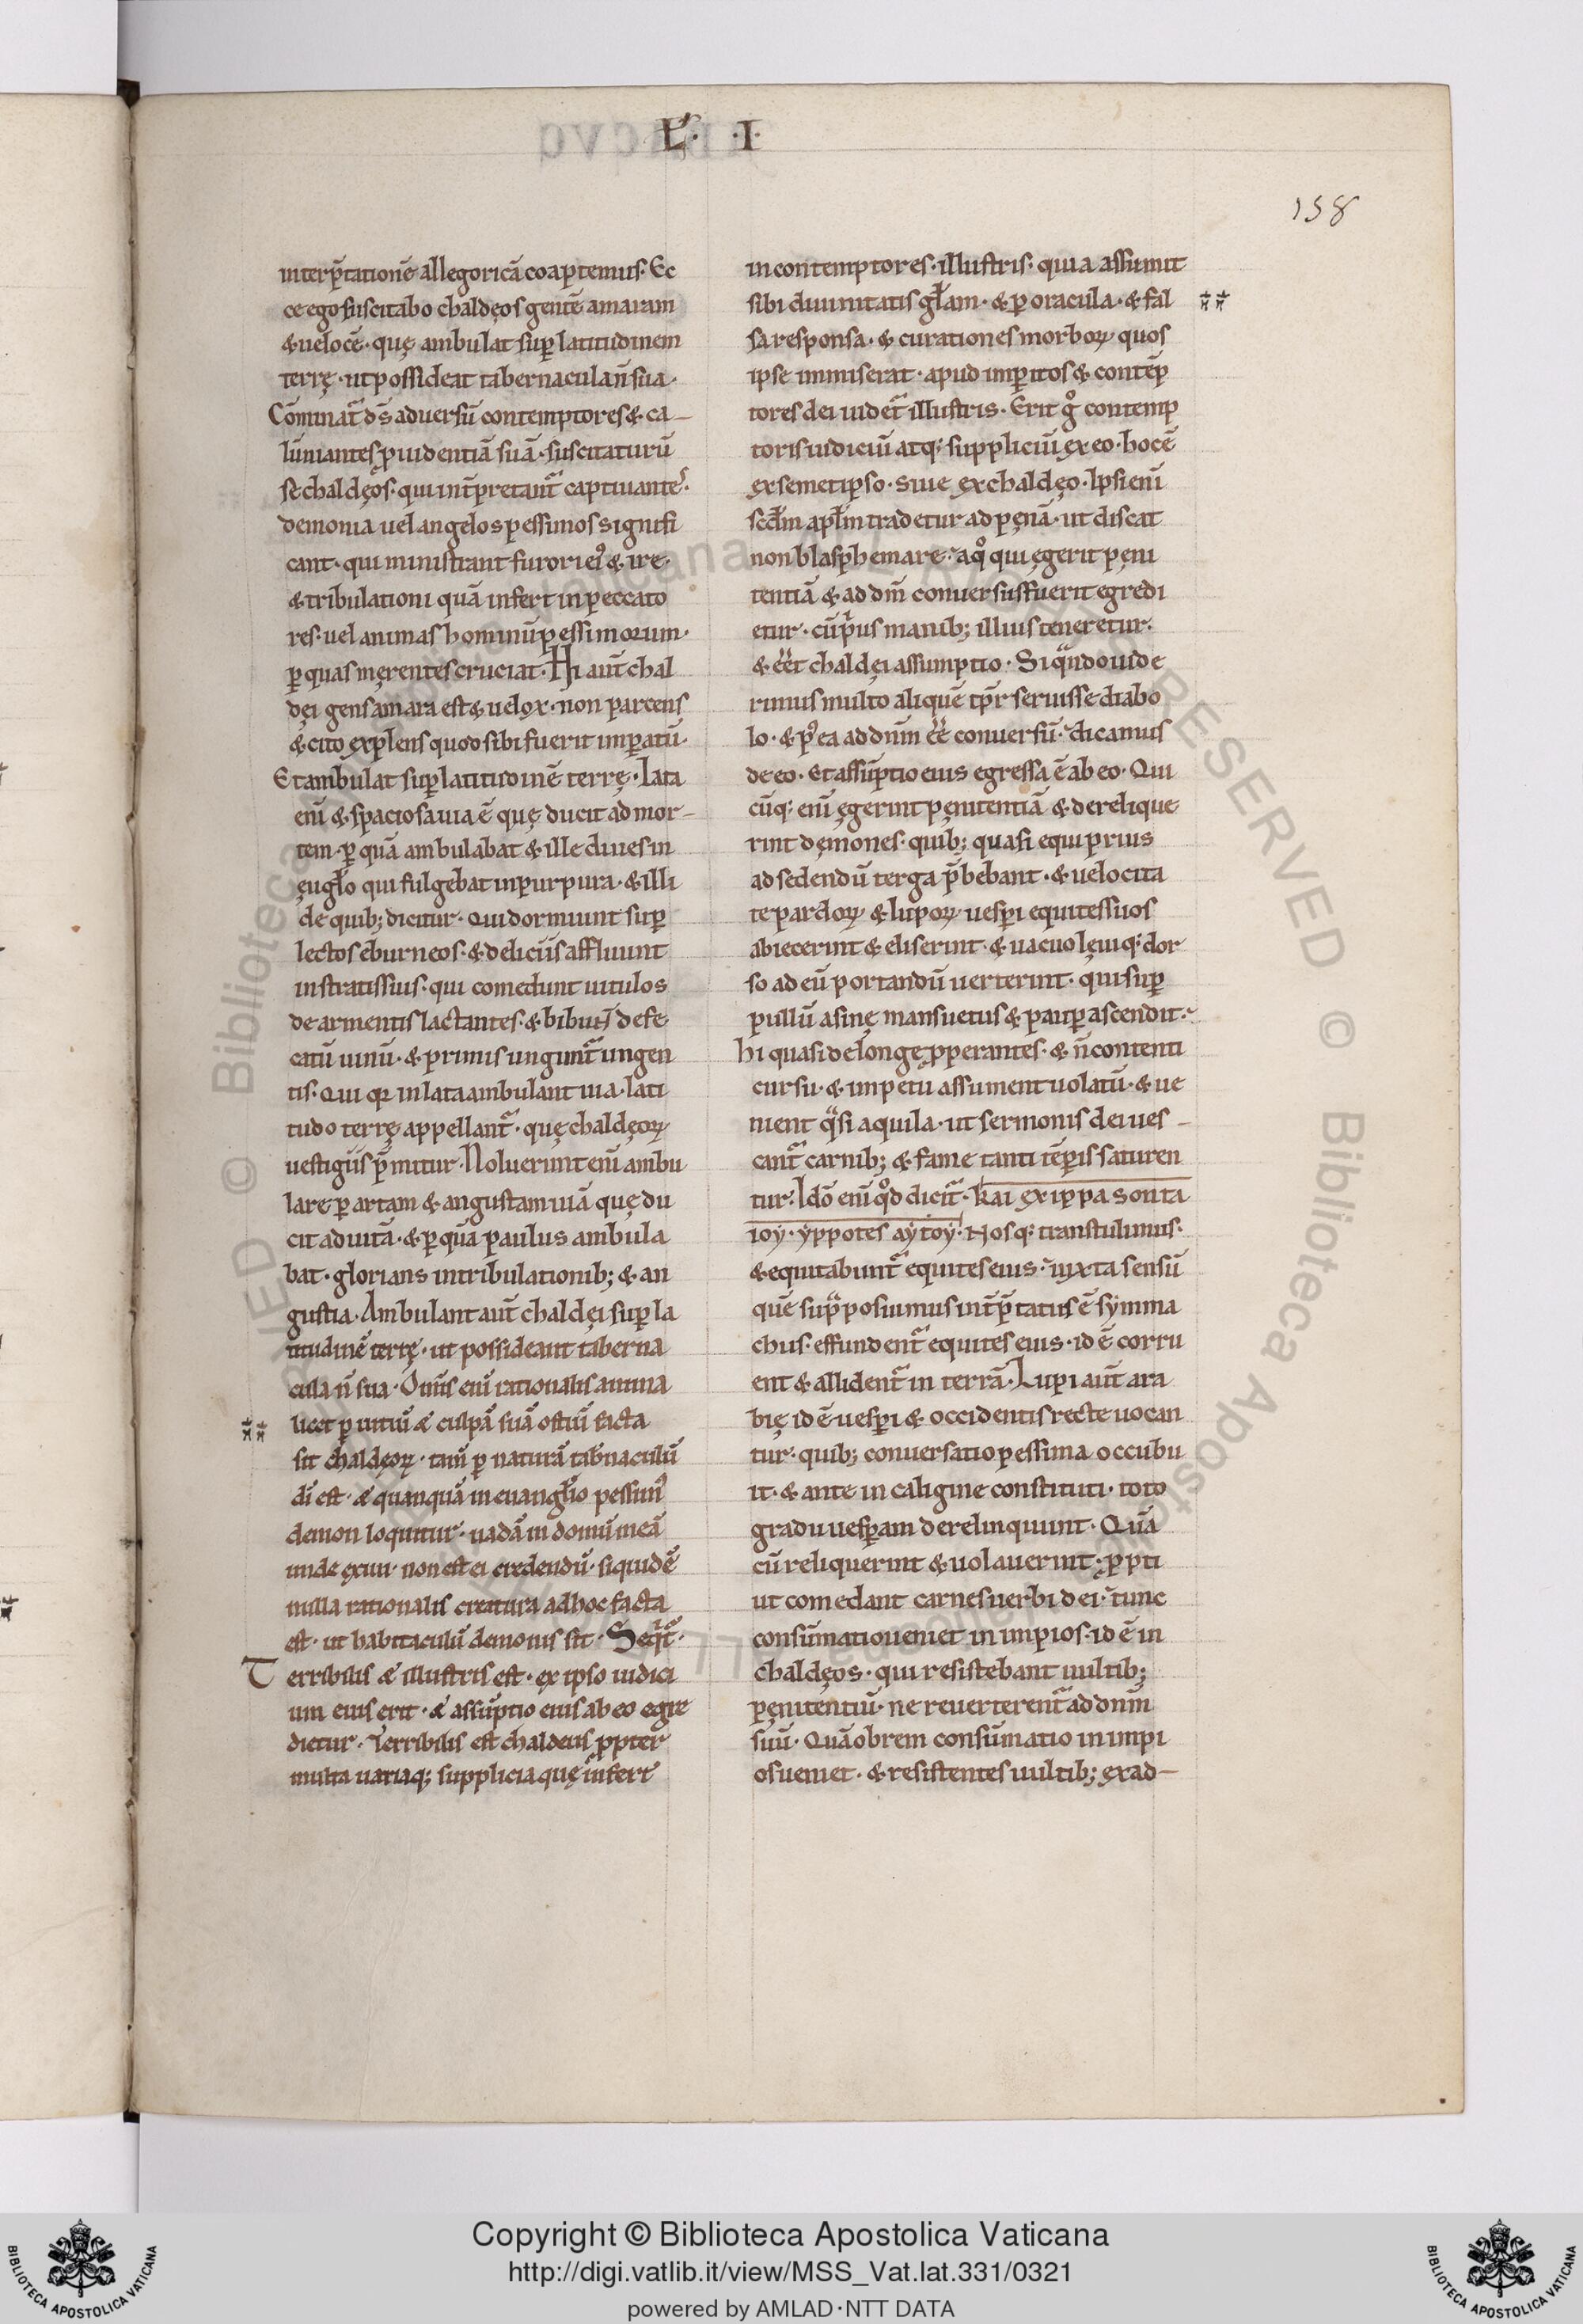 L̃· ·I·
158
interp̄tationē allegoricā coaptemus· Ec
ce ego suscitabo chaldęos gentē amaram
& uelocē· quę ambulat sup̱ latitudinem
terrę· ut possideat tabernacula n̄ sua·
Cōminat̃ d̄s aduersū contemptores & ca–
lūniantes ꝓuidentiā suā· suscitaturū
se chaldęos· qui int̄pretant̃ captiuantes·
demonia uel angelos pessimos signifi
cant· qui ministrant furori eiꝰ & ire·
& tribulationi quā infert in peccato
res· uel animas hominū pessimorum·
ꝑ quas męrentes cruciat· Hi aut̄ chal
dęi gens amara est & uelox· non parcens
& cito explens quod sibi fuerit imꝑatū·
Et ambulat suꝑ latitudinē terrę· Lata
eni̅ & spaciosa uia ē quę ducit ad mor–
tem· ꝑ quā ambulabat & ille diues in
ęuglo̅ qui fulgebat in purpura· & illi
de quib; dicitur· Qui dormiunt suꝑ
lectos eburneos· & deliciis affluunt
in stratis suis· qui comedunt uitulos
de armentis lactantes· & bibunt defe
catū uinū· & primis ungunt̃ ungen
tis· Qui qꝛ in lata ambulant uia· lati
tudo terrę appellant̃· quę chaldęoꝝ
uestigiis p̄mitur· Noluerunt eni̅ ambu
lare ꝑ artam & angustam uiā quę du
cit ad uitā· & ꝑ quā paulus ambula
bat· glorians in tribulationib; & an
gustia· Ambulant aut̄ chaldęi suꝑ la
titudinē terrę· ut possideant taberna
cula n̄ sua· Om̄is eni̅ rationalis anima
licet ꝑ uitiū & culpā suā ostiū facta
sit chaldęoꝝ· tam̄ ꝑ naturā tab̄naculū
dī est· & quanquā in euanglīo pessimꝰ
demon loquitur· uadā in domū meā
unde exiui· non est ei credendū· siquidē
nulla rationalis creatura ad hoc facta
est· ut habitaculū demonis sit· Seqt̃·
Terribilis & illustris est· ex ipso iudici
um eius erit· & assūptio eius ab eo egre
dietur· Terribilis est chaldeus ꝓpter
multa uariaq; supplicia quę infert
in contemptores· illustris· quia assumit
sibi diuinitatis gl̄am· & ꝑ oracula· & fal
sa responsa· & curationes morboꝝ quos
ipse immiserat· apud imꝑitos & contēp
tores dei uidet̃ illustris· Erit g° contemp
toris iudiciū atq; suppliciū ex eo· hoc ē
ex semetipso· siue ex chaldęo· Ipsi eni̅
scđm apl̄m tradetur ad pęnā· ut discat
non blasphemare· a q° qui ęgerit pęni
tentiā & ad dn̄m conuersus fuerit egredi
etur· cū pͥus manib; illius teneretur·
& eēt chaldęi assumptio· Si qͣndo uide
rimus multo aliquē tp̄r seruisse diabo
lo· & pꝰ ea ad dn̄m eē conuersū· dicamus
de eo· Et assūptio eius egressa ē ab eo· Qui
cūq; eni̅ ęgerint pęnitentiā & derelique
rint dęmones· quib; quasi equi prius
ad sedendū terga p̄bebant· & uelocita
te pardoꝝ & lupoꝝ uesꝑi equites suos
abiecerint & eliserint· & uacuo lęuiq; dor
so ad eū portandū uerterint· qui suꝑ
pullū asinę mansuetus & pauꝑ ascendit·
hi quasi de longe ꝓperantes· & n̄ contenti
cursu· & impetu assument uolatū· & ue
nient qͣsi aquila· ut sermonis dei ues–
cant̃ carnib; & fame tanti tēꝑis saturen
tur· Idō eni̅ q°d dicit̃· kai exippasonta
ioy· yppotes aytoy· Nosq; transtulimus·
& equitabunt̃ equites eius· iuxta sensū
quē supͣ posuimus int̄p̄tatus ē symma
chus· effundent̃ equites eius· id ē corru
ent & allident̃ in terrā· Lupi aut̄ ara
bię id ē uesꝑi & occidentis recte uocan
tur· quib; conuersatio pessima occubu
it· & ante in caligine constituti· toto
gradu uesꝑam derelinquunt· Quā
cū reliquerint & uolauerint· ꝓpti
ut comedant carnes uerbi dei· tunc
consūmatio ueniet in impios· id ē in
chaldęos· qui resistebant uultib;
pęnitentiū· ne reuerterent̃ ad dn̄m
suū· Quāobrem consūmatio in impi
os ueniet· & resistentes uultib; ex ad–
Copyright © Biblioteca Apostolica Vaticana
http://digi.vatlib.it/view/MSS_Vat.lat.331/0321
powered by AMLAD·NTT DATA
BIBLIOTECA APOSTOLICA VATICANA
BIBLIOTECA APOSTOLICA VATICANA